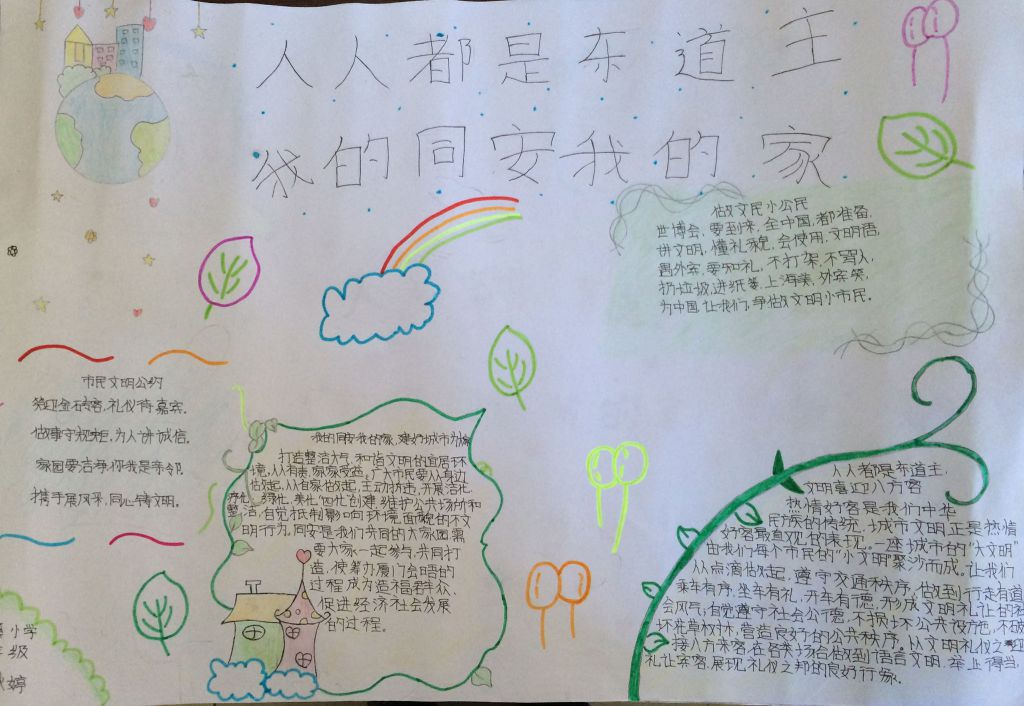 人人都是东道主
我的同安我的家
做文民小公民
世博会,要到来,全中国,都准备,
讲文明,懂礼貌,会使用,文明语,
遇外宾,要知礼,不打架,不骂人,
扔垃圾,进纸篓,上海美,外宾笑,
为中国,让我们,争做文明小市民。
市民文明公约
笑迎金砖客,礼仪待嘉宾.
做事守规矩,为人讲诚信.
家园要洁净,你我是亲邻.
携手展风采,同心铸文明.
我的同安我的家,建好城市为
打造整洁大气,和谐文明的宜居环
境,人人有责,家家受益,广大市民要从身边
做起,从自家做起,主动抗违,开展洁化,
序化,绿化,美化"四化"创建,维护公共场所和
整洁,自觉抵制影响环境面貌的不文
明行为,同安是我们共同的大家园,需
要大家一起参与,共同打
造,使筹办厦门会晤的
过程成为造福群众,
促进经济社会发展
的过程.
人人都是东道主,
文明喜迎八方客
热情好客是我们中华
民族的传统,城市文明正是热情
好客最直观的表现。一座城市的"大文明"
由我们每个市民的"小文明"聚沙而成。让我们
从点滴做起,遵守交通秩序,做到行走有道
乘车有序,坐车有礼,开车有德,形成文明礼让的社
会风气;自觉遵守社会公德,不损坏公共设施,不破
坏花草树木,营造良好的公共秩序。从文明礼仪之
接八方来客,在各类场合做到语言文明,举止得当,
礼让宾客,展现礼仪之邦的良好形象。
小学
年级
婷